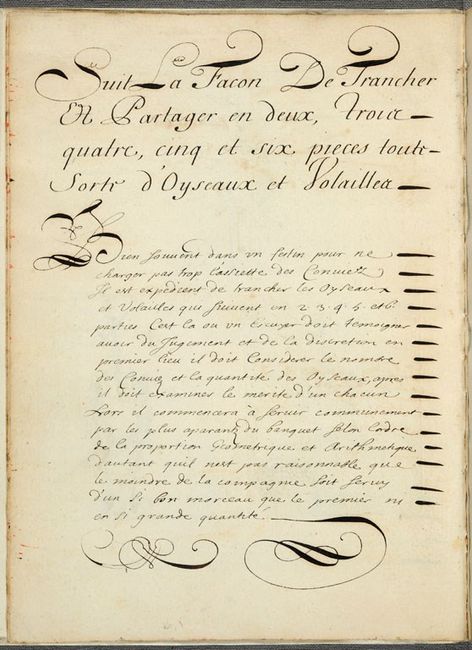 Suit La Facon De Trancher
Et Partager en deux, troice
quatre, cinq et six pieces toute
Sorte d'Oyseaux et Volaillea
Bien souvent dans vn festin pour ne
charger pas trop lassiette des Conviez
Il est expedient de trancher les Oyseaux
et Volailes qui suivent en 2. 3. 4. 5. et 6.
parties Cest la ou vn Escuyer doit temoigner
avoir du Jugement et de la discretion en
premier lieu il doit Considerer le nombre
des Conviez et la quantité des Oyseaux, apres
il doit examiner le merite d'un chacun
Lors il commencera à servir commencement
par les plus aparantz du banquet selon lordre
de la proportion Geometrique et Arithmetique
d'autant quil nest pas raisonnable que
le moindre de la compagnie soit servy
d'un si bon morceau que le premier ni
en si grande quantité